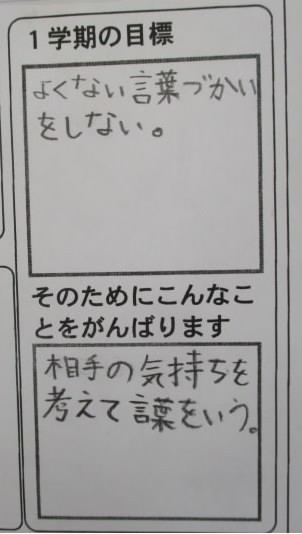 1学期の目標
よくない言葉づかい
をしない。
そのためにこんなこ
とをがんばります
相手の気持ちを
考えて言葉をいう。